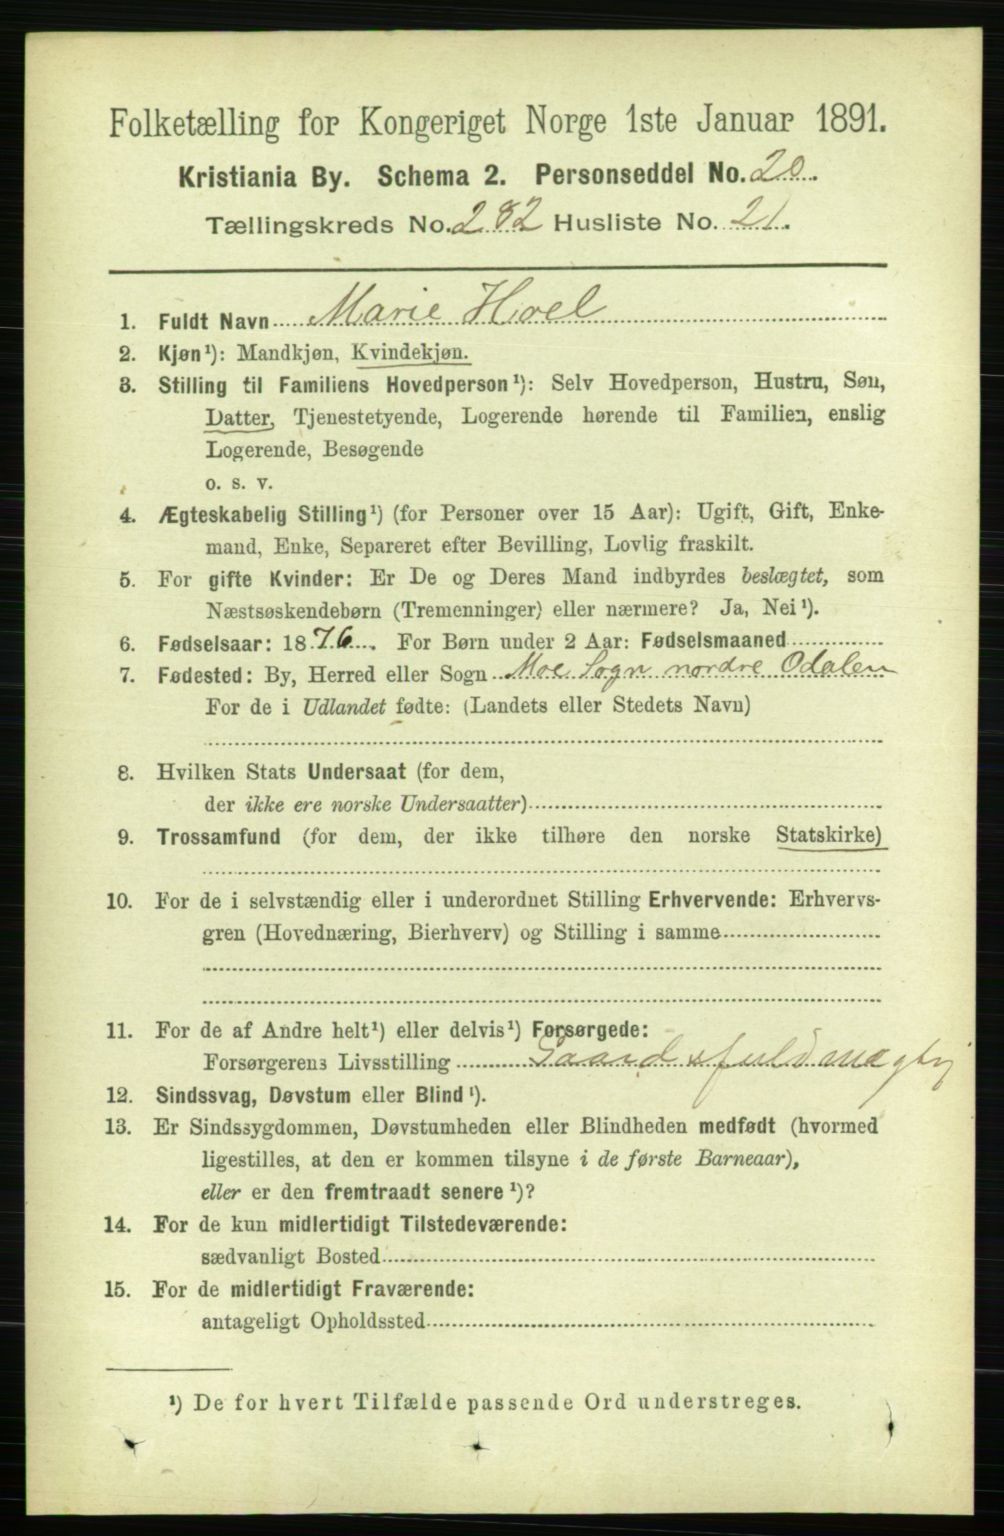 Folketælling for Kongeriget Norge 1ste Januar 1891.
Kristiania By. Schema 2. Personseddel No. 20.
Tællingskreds No. 282 Husliste No. 21.
1. Fuldt Navn Marie Hoel
2. Kjøn¹): Mandkjøn, Kvindekjøn.
3. Stilling til Familiens Hovedperson¹): Selv Hovedperson, Hustru, Søn,
Datter, Tjenestetyende, Logerende hørende til Familien, enslig
Logerende, Besøgende
o. s. v.
4. Ægteskabelig Stilling¹) (for Personer over 15 Aar): Ugift, Gift, Enke-
mand, Enke, Separeret efter Bevilling, Lovlig fraskilt.
5. For gifte Kvinder: Er De og Deres Mand indbyrdes beslægtet, som
Næstsøskendebørn (Tremenninger) eller nærmere? Ja, Nei¹).
6. Fødselsaar: 1876. For Børn under 2 Aar: Fødselsmaaned
7. Fødested: By, Herred eller Sogn Moe Sogn nordre Odalen
For de i Udlandet fødte: (Landets eller Stedets Navn)
8. Hvilken Stats Undersaat (for dem,
der ikke ere norske Undersaatter)
9. Trossamfund (for dem, der ikke tilhøre den norske Statskirke)
10. For de i selvstændig eller i underordnet Stilling Erhvervende: Erhvervs-
gren (Hovednæring, Bierhverv) og Stilling i samme
11. For de af Andre helt¹) eller delvis¹) Forsørgede:
Forsørgerens Livsstilling Gaardsfuldmægtig
12. Sindssvag, Døvstum eller Blind¹).
13. Er Sindssygdommen, Døvstumheden eller Blindheden medfødt (hvormed
ligestilles, at den er kommen tilsyne i de første Barneaar),
eller er den fremtraadt senere¹)?
14. For de kun midlertidigt Tilstedeværende:
sædvanligt Bosted
15. For de midlertidigt Fraværende:
antageligt Opholdssted
¹) De for hvert Tilfælde passende Ord understreges.